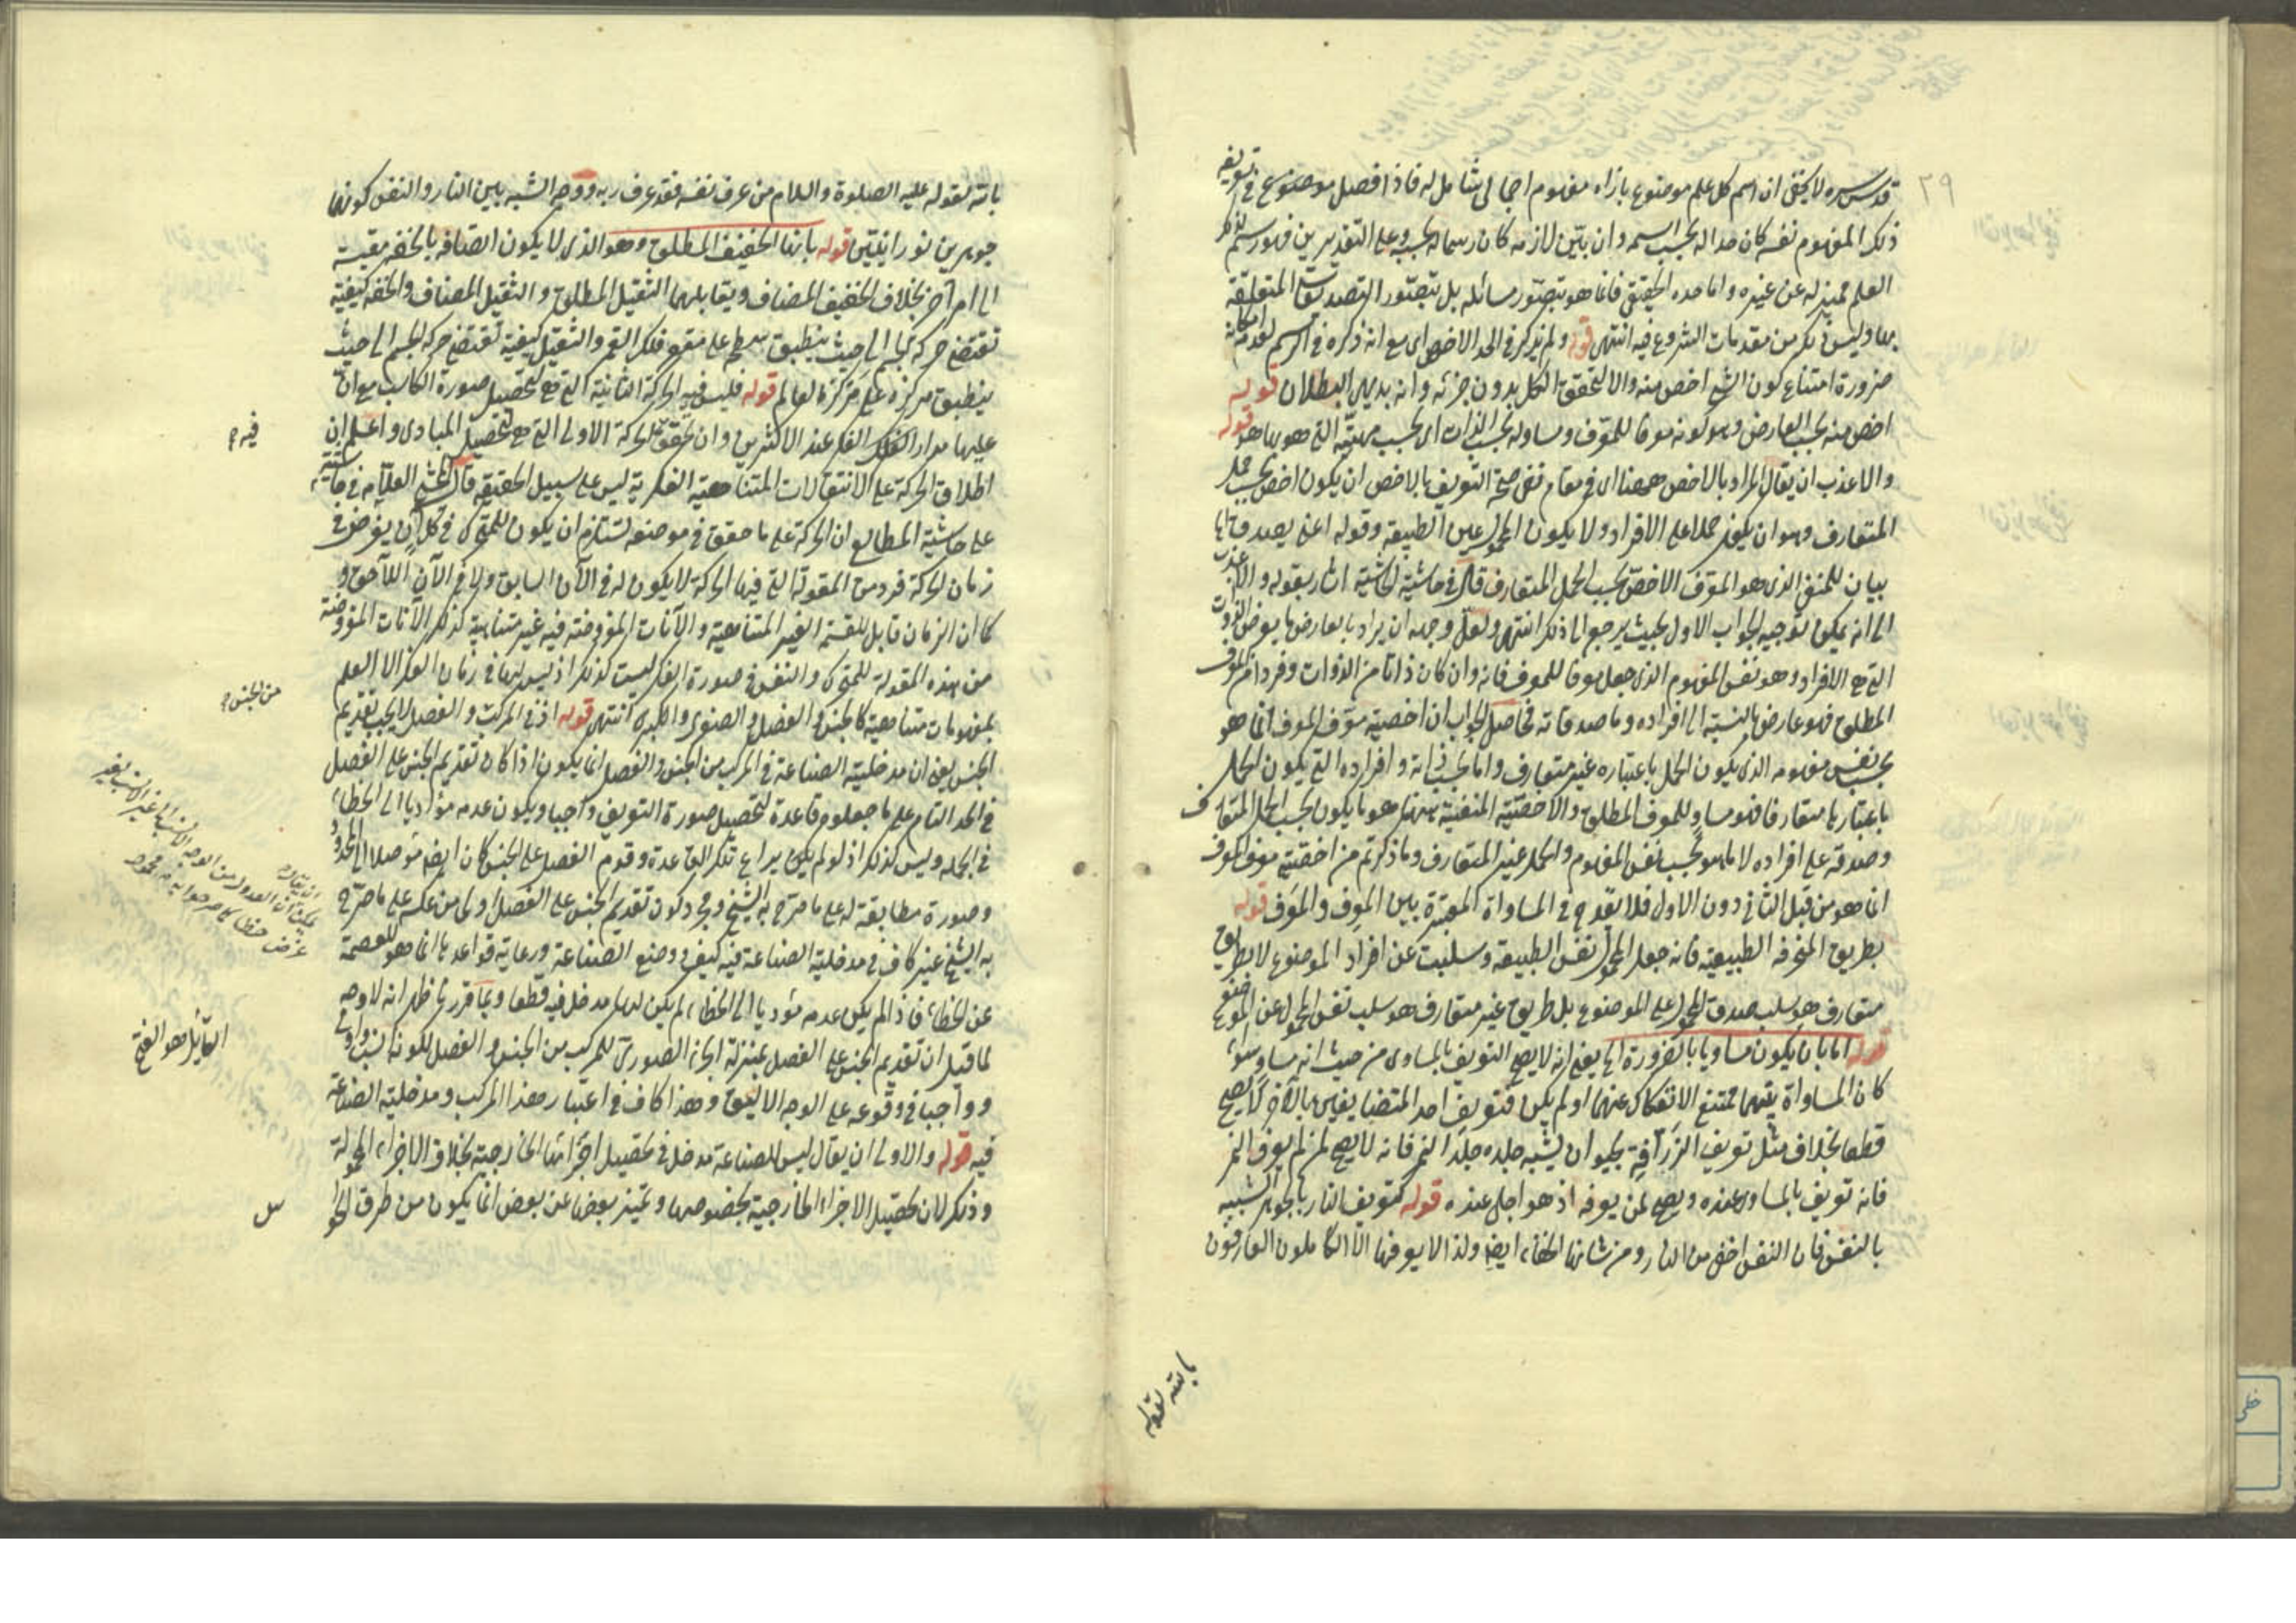 ٢٩
قدس سره لا يخفى ان اسم كل علم موضوع بازاء مفهوم اجمالى شامل له فاذا فصل موضوع فى تعريفه
ذلك المفهوم نفسه كان حدا له بحسب اسمه وان بيّن لازمه كان رسما له بحسبه وعلى التقديرين فهو رسم لذلك
العلم مميز له عن غيره واما حده الحقيقى فانما هو بتصوّر مسائله بل بتصوّر التصديقات المتعلقة
بها وليس ذلك من مقدمات الشروع فيه انتهى قوله ولم يذكر فى الحد الاخص اى مع انه ذكره فى الرسم لعدم امكانه
ضرورة امتناع كون الشئ اخص منه والا لتحقق الكل بدون جزئه وانه بديهى البطلان قوله
اخص منه بحسب العارض وهو كونه معرفا للمعرّف ومساو له بحسب الذات اى بحسب مهيّته التى هو بها هو قوله
والاعذب ان يقال المراد بالاخص ههنا اى فى مقام نفى صحة التعريف بالاخص ان يكون اخص بحسب حمل
المتعارف وهو ان يفيد حملا على الافراد ولا يكون المحمول عين الطبيعة وقوله اعنى يصدق
بيان للمنفى الذى هو المعرّف الاخص بحسب الحمل المتعارف قال فى حاشية الحاشية اشار بقوله والاعذب
الى انه يمكن توجيه الجواب الاول بحيث يرجع الى ذلك انتهى ولعل وجهه ان يراد بالعارض ما يعرض الذوات
التى هى الافراد وهو نفس المفهوم الذى جعل معرفا للمعرف فانه وان كان ذاتا من الذوات وفردا من المعرف
المطلق فهو عارض بالنسبة الى افراده وما صدقاته فحاصل الجواب ان اخصية معرّف المعرف انما هو
بحسب نفس مفهومه الذى يكون الحمل باعتباره غير متعارف واما بحسب ذاته وافراده التى يكون الحمل
باعتبارها متعارفا فهو مساو للمعرف المطلق والاخصيّة المنفية ههنا هو ما يكون بحسب الحمل المتعارف
وصدقه على افراده لا ما هو بحسب نفس المفهوم والحمل غير المتعارف وما ذكرتم من اخصية معرف المعرف
انما هو من قبل الثانى دون الاول فلا يقدح فى المساواة المعتبرة بين المعرِف والمعرَف قوله
بطريق المنحرفه الطبيعية فانه جعل المحمول نفس الطبيعة وسلبت عن افراد الموضوع لا بطريق
متعارف هو سلب صدق المحمول على الموضوع بل طريق غير متعارف هو سلب نفس المحمول عن الموضوع
قوله اما بان يكون مساويا بالضرورة الى يعنى انه لا يصح التعريف بالمساوى من حيث انه مساو سواء
كان المساواة بينهما ممتنع الانفكاك عنهما او لم يكن فتعريف احد المتضايفين بالآخر لا يصح
قطعا بخلاف مثل تعريف الزرافة بحيوان يشبه جلده جلد النمر فانه لا يصح لمن لم يعرف النمر
فانه تعريف بالمساوى عنده ويصح لمن يعرفه اذ هو اجلى عنده قوله كتعريف النار بالجوهر الشبيه
بالنفس فان النفس اخفى من النار ومن شانها الخفاء ايضا ولذا لا يعرفها الا الكاملون العارفون
بالله لقوله
بالله لقوله عليه الصلوة والسلام من عرف نفسه فقد عرف ربه ووجه الشبه بين النار والنفس كونهما
جوهرين نورانيتين قوله بانها الخفيف المطلق وهو الذى لا يكون اتصافه بالخفه مقيسة
الى امر آخر بخلاف الخفيف المضاف ويقابلهما الثقيل المطلق والثقيل المضاف والخفه كيفية
تقتضى حركة الجسم الى حيث ينطبق سطحه على مقعر فلك القمر والثقيل كيفية تقتضى حركة الجسم الى حيث
ينطبق مركزه على مركز العالم قوله فليس فيه الحركة الثانية التى هى لتحصيل صورة الكاسب مع ان
عليها مدار الفكر عند الاكثرين وان تحقق الحركة الاولى التى هى لتحصيل المبادى واعلم ان
اطلاق الحركة على الانتقالات المتناهية الفكرية ليس على سبيل الحقيقة قال المحشى العلامه فى حاشيته
على حاشية المطالع ان الحركة على ما حقق فى موضعه تستلزم ان يكون للمتحرك فى كل آن يفرض فى
زمان الحركة فرد من المقولة التى فيها الحركة لا يكون له فى الآن السابق ولا فى الآن اللاحق و
كما ان الزمان قابل للقسمة الغير المتناهية والآنات المفروضة فيه غير متناهية كذلك الآنات المفروضة
من هذه المقولة للمتحرك والنفس فى صورة الفكر ليست كذلك اذ ليس لها فى زمان الفكر الا العلم
بمفهومات متناهية كالجنس والفصل والصغرى والكبرى انتهى قوله اذ فى المركب والفصل لا يجب تقديم
الجنس يعنى ان مدخلية الصناعة فى المركب من الجنس والفصل انما يكون اذا كان تقديم الجنس على الفصل
فى الحد التام على ما جعلوه قاعدة لتحصيل صورة التعريف واجبا ويكون عدمه مؤديا الى الخطاء
فى الجمله وليس كذلك اذ لو لم يكن يراع تلك القاعدة وقدم الفصل على الجنس كان ايضا موصلا الى المحدود
وصورة مطابقة له على ما صرّح به الشيخ ومجرد كون تقديم الجنس على الفصل اولى من عكسه على ما صرّح
به الشيخ غير كاف فى مدخلية الصناعة فيه كيف ووضع الصناعة ورعاية قواعدها انما هو للعصمة
عن الخطاء فاذا لم يكن عدمه مؤديا الى الخطاء لم يكن لها مدخل فيه قطعا وبما قررنا ظهر انه لا وجه
لما قيل ان تقديم الجنس على الفصل بمنزلة الجزء الصورى للمركب من الجنس والفصل لكونه انسب واولى
وواجبا فى وقوعه على الوجه الاليق وهذا كاف فى اعتبار هذا المركب ومدخلية الصناعة
فيه قوله والاولى ان يقال ليس للصناعة مدخل فى تحصيل اجزائها الخارجية بخلاف الاجزاء المحمولة
وذلك لان تحصيل الاجزاء الخارجية بخصوصها وتميز بعضها عن بعض انما يكون من طرق الحواس
فيه م
من الجنس م
القائل هو الفتح
س